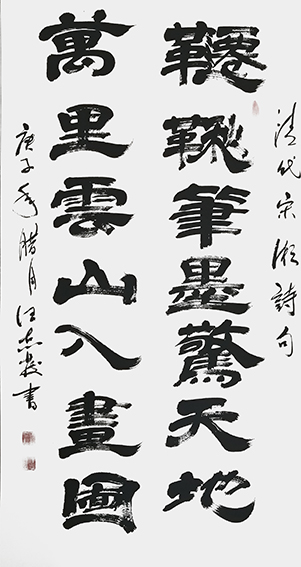 清代宋湘詩句
韆鞦筆墨驚天地
萬里雲山入畫圖
庚子年腊月汪志書